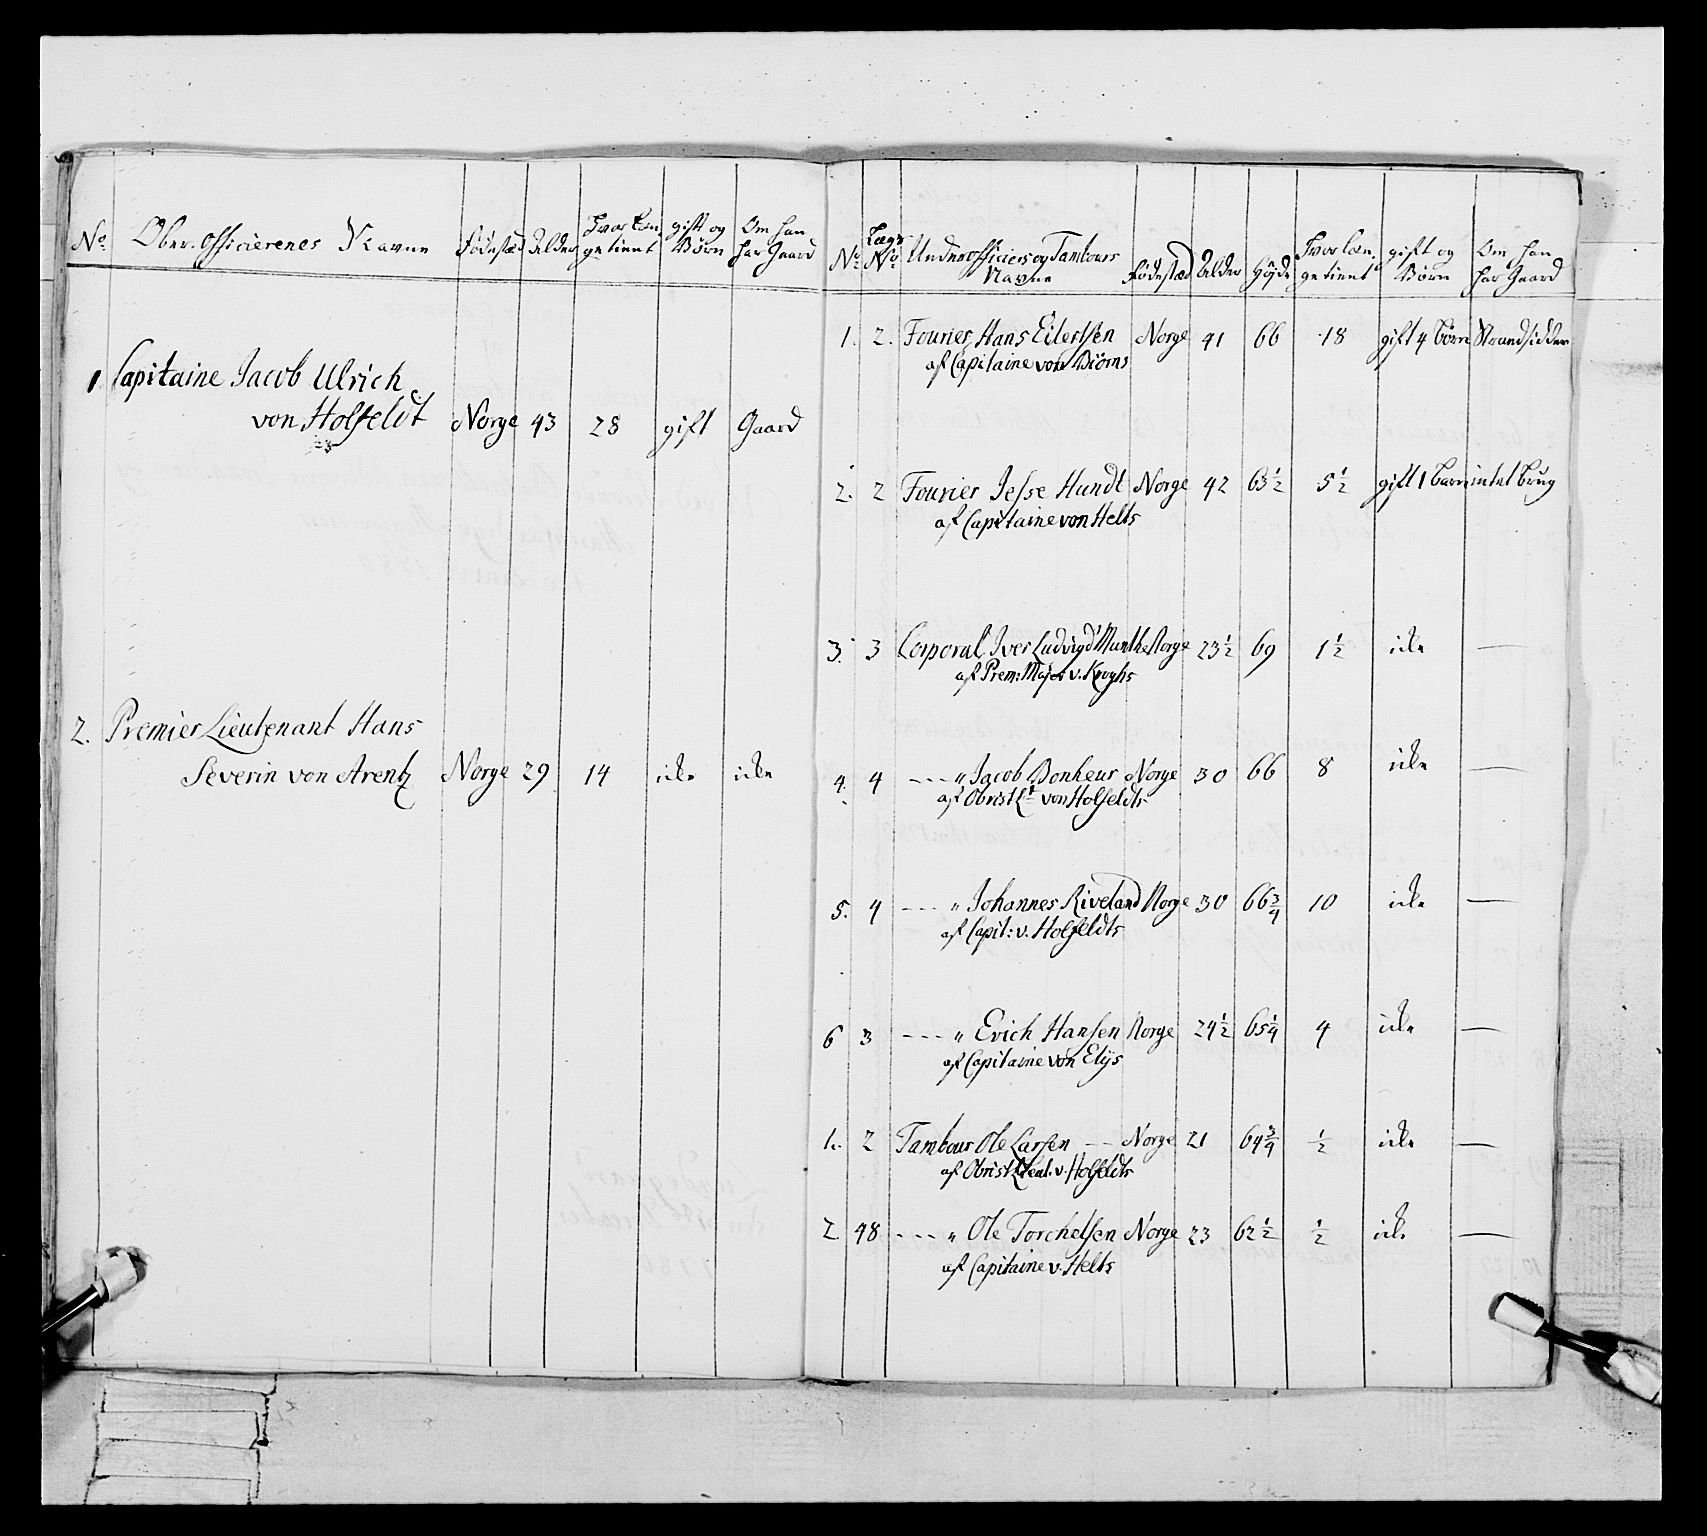 No. Ober-officierenes Navne Fødestæd Alder Hvor læn- getient gift og Børn Om han har Gaard
1 Capitaine Jacob Ulrich
von Holfeldt Norge 43 28 gift Gaard
2. Premier Lieutenant Hans
Severin von Arentz Norge 29 14 icke icke
No. Lægs No. Underofficiers og Tambours Navne Fødestæd Alder Høyde Hvor læn- getient gift og Børn Om han har Gaard
1. 2. Fourier Hans Eilertsen Norge 41 66 18 gift 4 børn Strandsidder
af Capitaine von Biörns
2. 2 Fourier Jesse Hundt Norge 42 63 1/2 5 1/2 gift 1 barn intet brug
af Capitaine von Helts
3. 3 Corporal Iver Ludvigd Munthe Norge 23 1/2 69 1 1/2 icke —
af Prem: Major v. Kroghs
4. 4 --- " Jacob Bonheur Norge 30 66 8 icke —
af Obrist Lt von Holfeldts
5. 4 --- " Johannes Riveland Norge 30 66 3/4 10 icke —
af Capit: v. Holfeldts
6 3 --- " Erich Hansen Norge 24 1/2 65 1/4 4 icke —
af Capitaine von Elÿs
1. 2 Tambour Ole Larsen -- Norge 21 64 3/4 1/2 icke —
af Obrist Lieut. v. Holfeldts
2 48 --- " Ole Torchelsen Norge 23 62 1/2 1/2 icke —
af Capitaine v. Helts